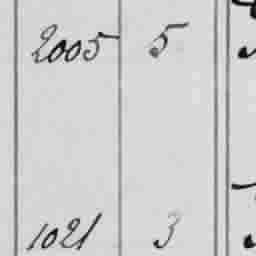 2005 5
1021 3